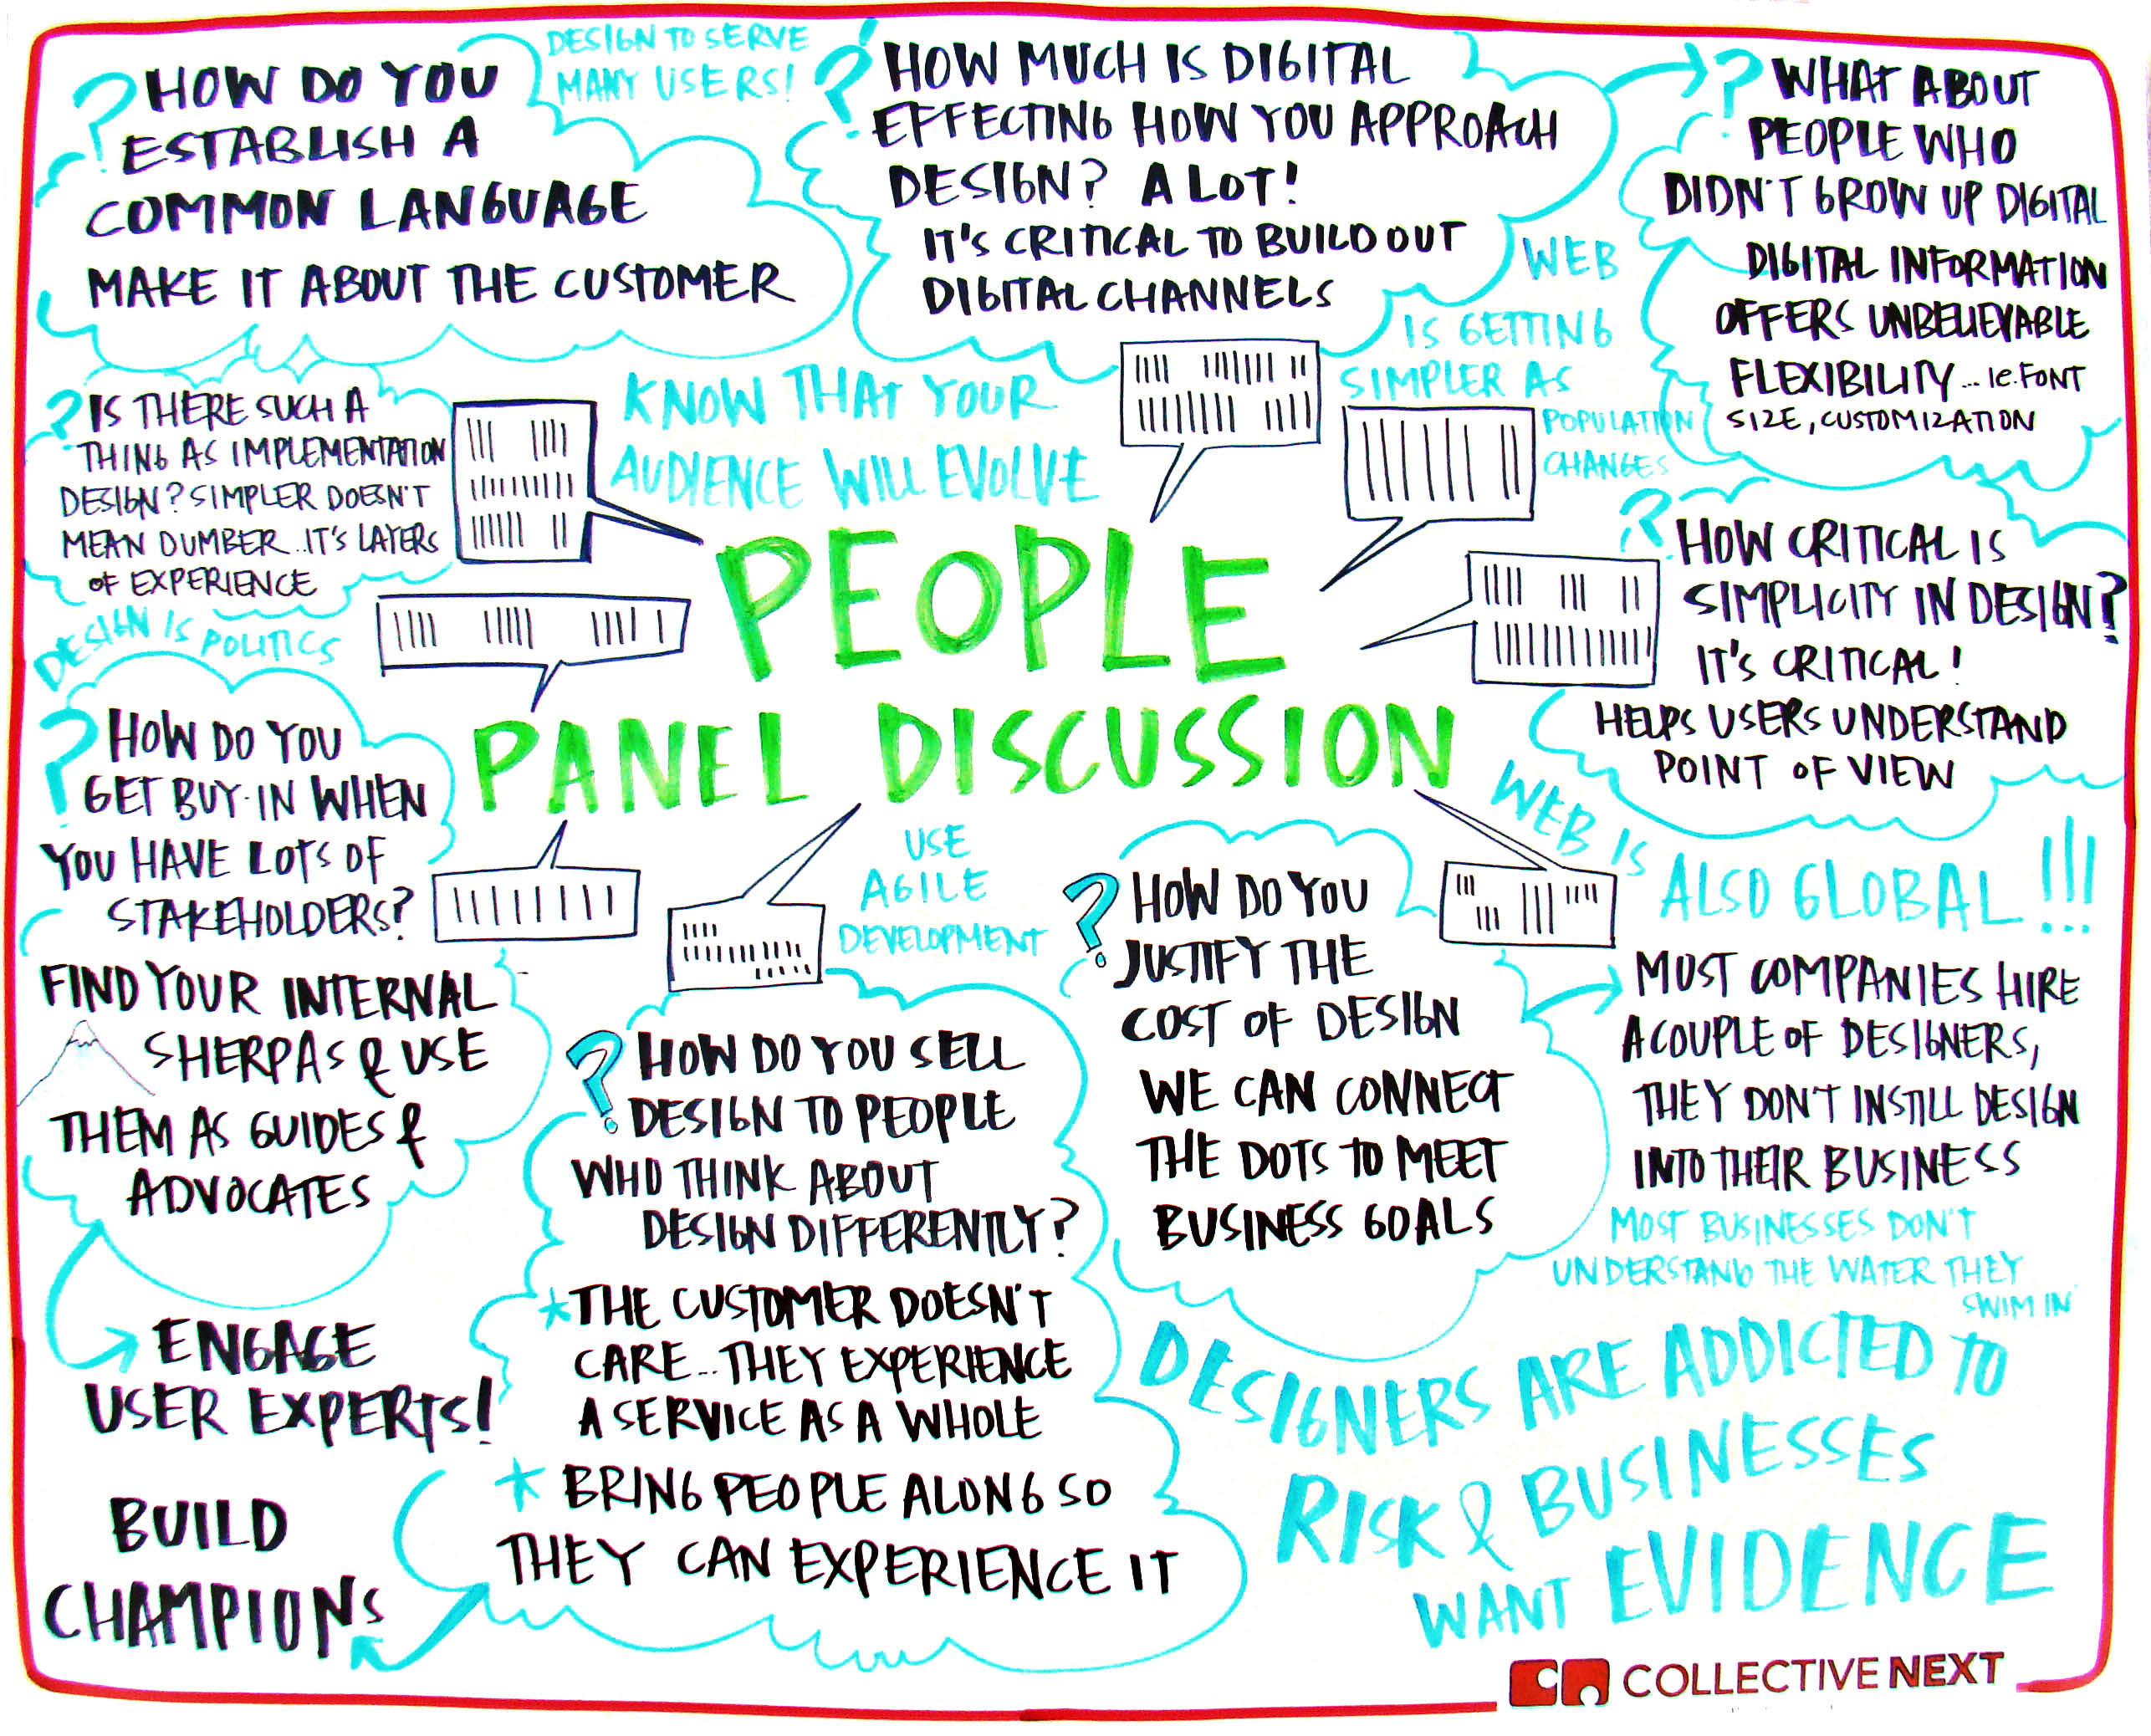 HOW DO YOU
ESTABLISH A
COMMON LANGUAGE
MAKE IT ABOUT THE CUSTOMER
DESIGN TO SERVE
MANY USERS!
? HOW MUCH IS DIGITAL
EFFECTING HOW YOU APPROACH
DESIGN? A LOT!
IT'S CRITICAL TO BUILD OUT
DIGITAL CHANNELS
? WHAT ABOUT
PEOPLE WHO
DIDN'T GROW UP DIGITAL
DIGITAL INFORMATION
OFFERS UNBELIEVABLE
FLEXIBILITY... IE. FONT
SIZE, CUSTOMIZATION
WEB
IS GETTING
SIMPLER AS
POPULATION
CHANGES
? IS THERE SUCH A
THING AS IMPLEMENTATION
DESIGN? SIMPLER DOESN'T
MEAN DUMBER.. IT'S LAYERS
OF EXPERIENCE
KNOW THAT YOUR
AUDIENCE WILL EVOLVE
PEOPLE
PANEL DISCUSSION
? HOW CRITICAL IS
SIMPLICITY IN DESIGN?
IT'S CRITICAL!
HELPS USERS UNDERSTAND
POINT OF VIEW
DESIGN IS POLITICS
? HOW DO YOU
GET BUY-IN WHEN
YOU HAVE LOTS OF
STAKEHOLDERS?
FIND YOUR INTERNAL
SHERPAS & USE
THEM AS GUIDES &
ADVOCATES
ENGAGE
USER EXPERTS!
BUILD
CHAMPIONS
USE
AGILE
DEVELOPMENT
? HOW DO YOU SELL
DESIGN TO PEOPLE
WHO THINK ABOUT
DESIGN DIFFERENTLY?
* THE CUSTOMER DOESN'T
CARE... THEY EXPERIENCE
A SERVICE AS A WHOLE
* BRING PEOPLE ALONG SO
THEY CAN EXPERIENCE IT
? HOW DO YOU
JUSTIFY THE
COST OF DESIGN
WE CAN CONNECT
THE DOTS TO MEET
BUSINESS GOALS
WEB IS
ALSO GLOBAL!!!
MOST COMPANIES HIRE
A COUPLE OF DESIGNERS,
THEY DON'T INSTILL DESIGN
INTO THEIR BUSINESS
MOST BUSINESSES DON'T
UNDERSTAND THE WATER THEY
SWIM IN
DESIGNERS ARE ADDICTED TO
RISK & BUSINESSES
WANT EVIDENCE
COLLECTIVE NEXT